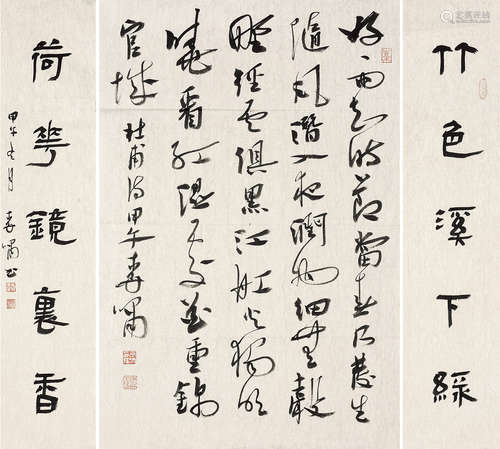 竹色溪下綠
好雨知時節當春乃發生
隨風潛入夜潤物細無聲
野徑雲俱黑江船火獨明
曉看紅濕處花重錦
官城 杜甫詩甲午春嘯
荷華鏡裏香
甲午 月 春嘯書